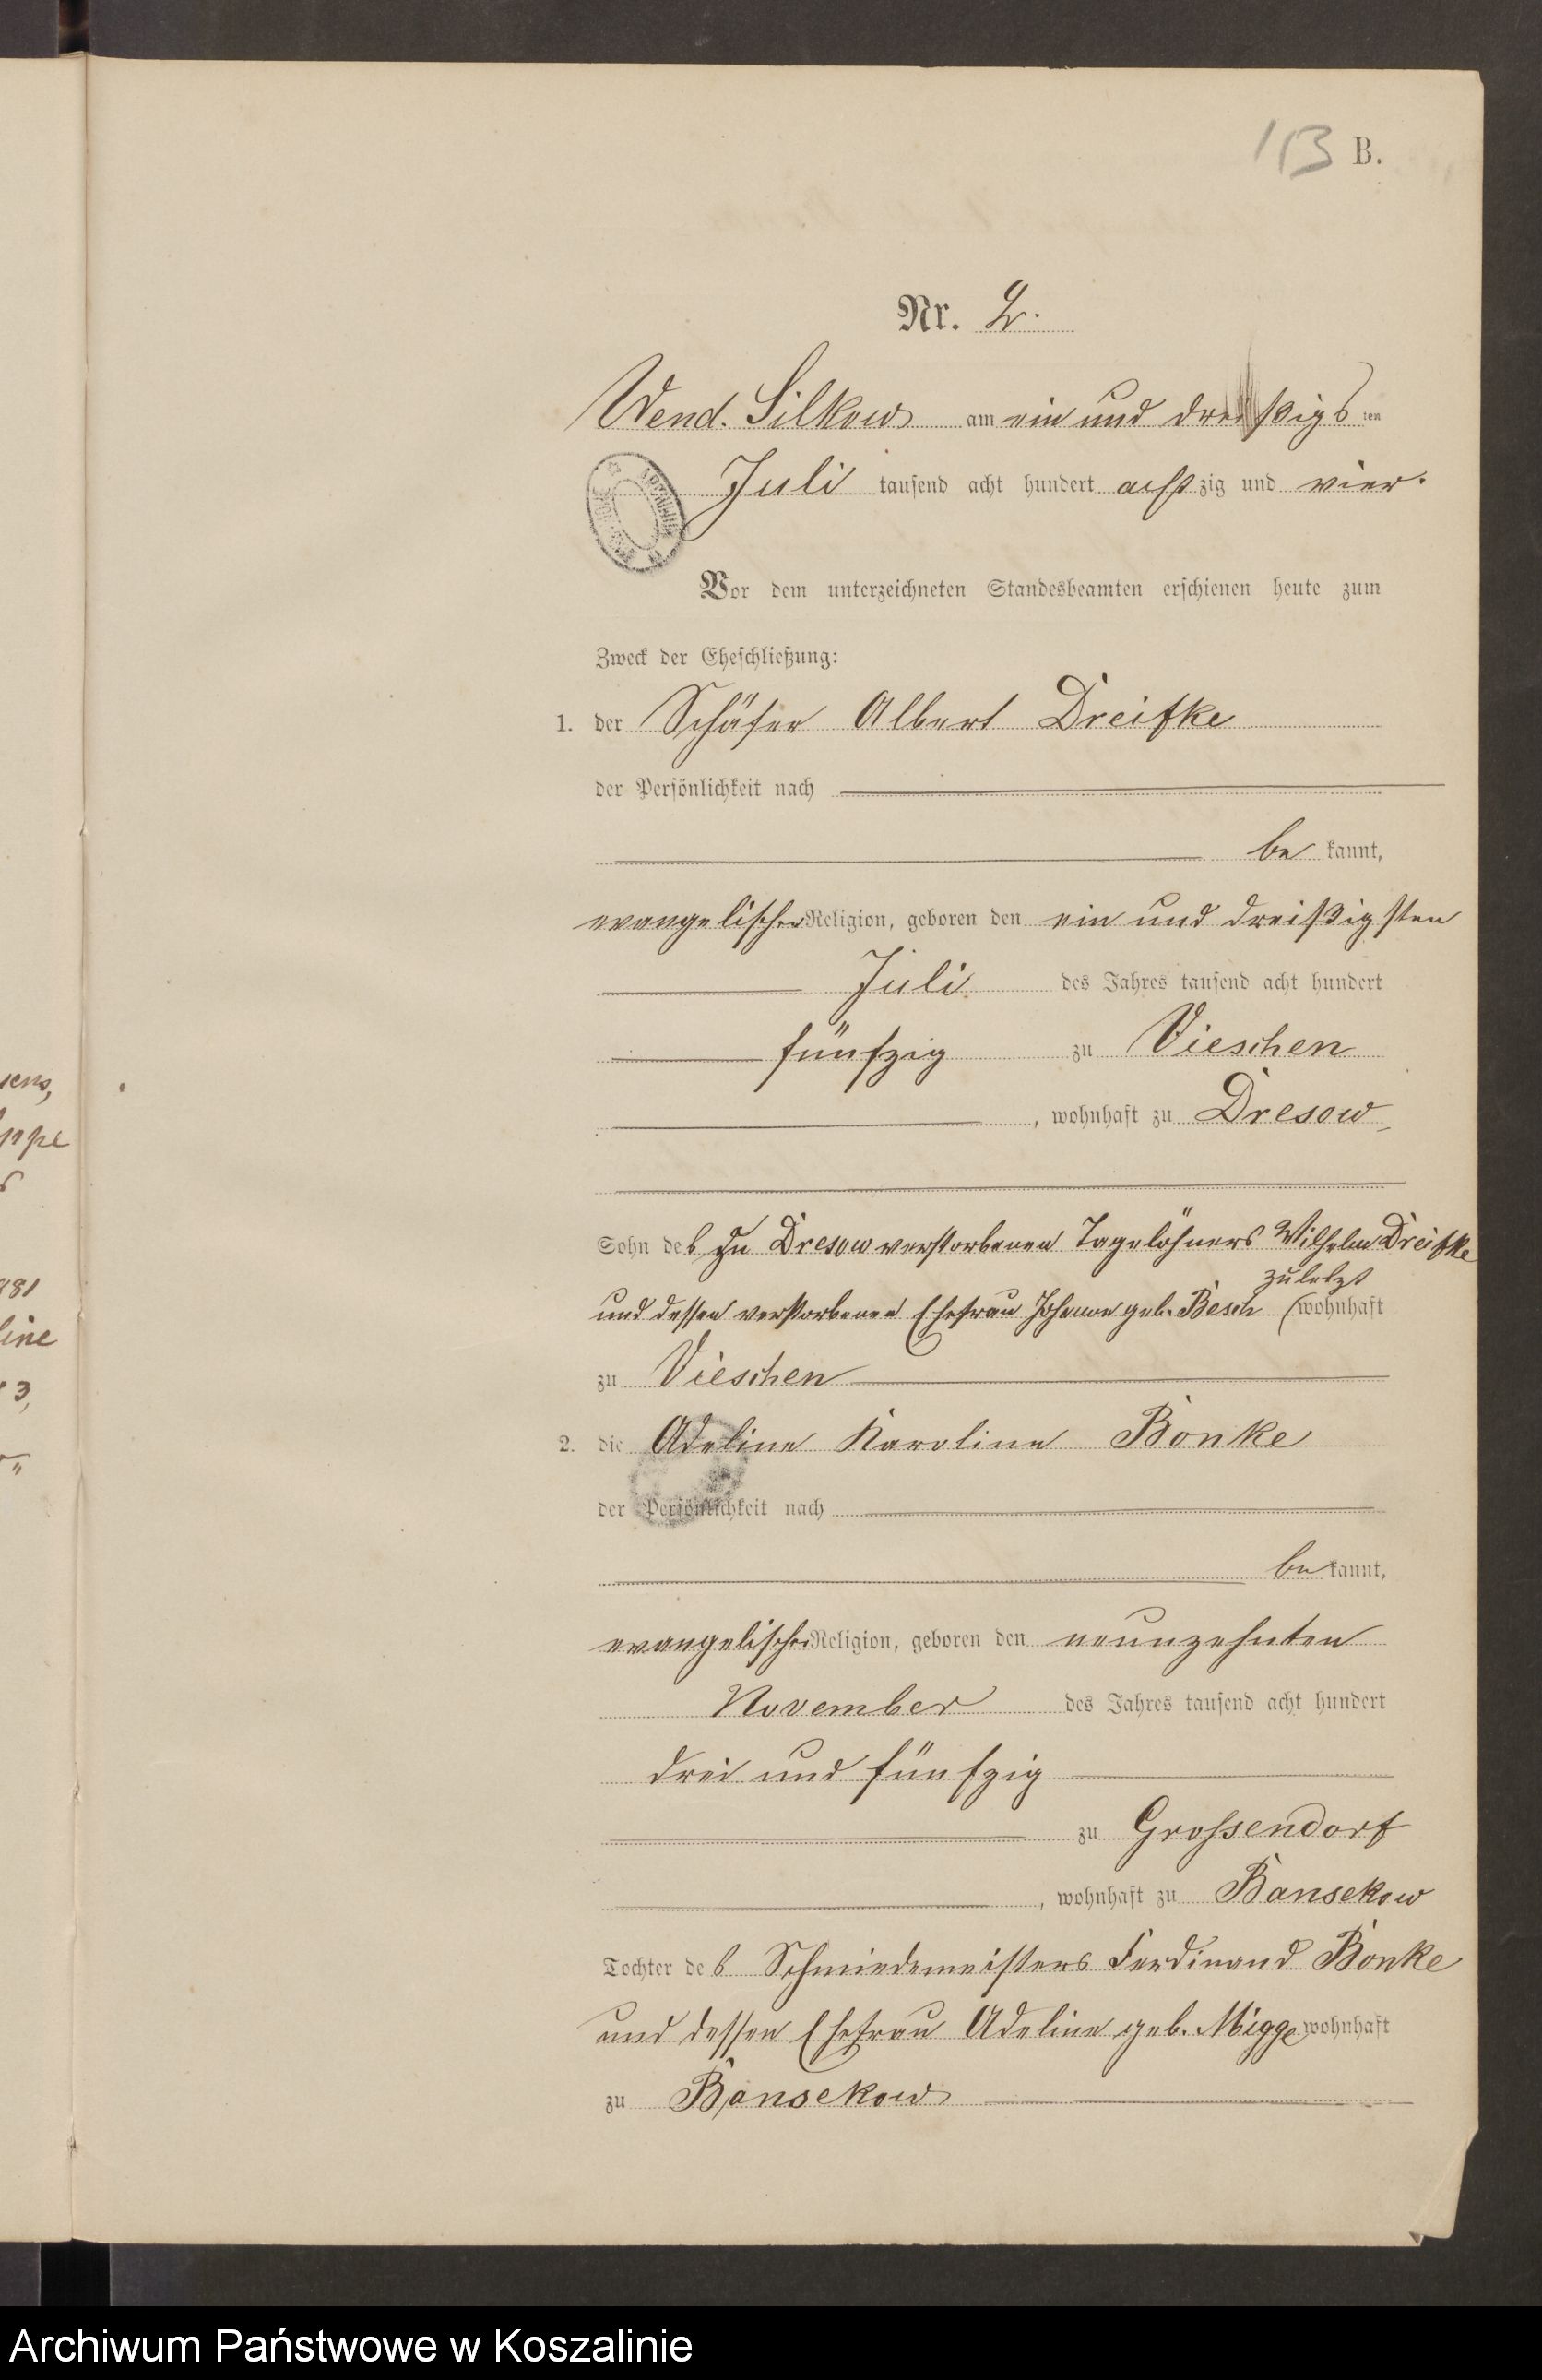 113 B.
Nr. 2.
Wend. Silkow am ein und dreißigsten
Juli tausend acht hundert achtzig und vier.
Vor dem unterzeichneten Standesbeamten erschienen heute zum
Zweck der Eheschließung:
1. der Schäfer Albert Dreifke
der Persönlichkeit nach
be kannt,
evangelischer Religion, geboren den ein und dreißigsten
Juli des Jahres tausend acht hundert
fünfzig zu Vieschen
, wohnhaft zu Dresow,
Sohn des zu Dresow verstorbenen Tagelöhners Wilhelm Dreifke
zuletzt
und dessen verstorbenen Ehefrau Johanne geb. Besch (wohnhaft
zu Vieschen
2. die Adeline Karoline Bonke
der Persönlichkeit nach
be kannt,
evangelischer Religion, geboren den neunzehnten
November des Jahres tausend acht hundert
drei und fünfzig
zu Grossendorf
, wohnhaft zu Bansekow
Tochter des Schmiedemeisters Ferdinand Bonke
und dessen Ehefrau Adeline geb. Migge wohnhaft
zu Bansekow
ppe
881
line
3,
Archiwum Państwowe w Koszalinie